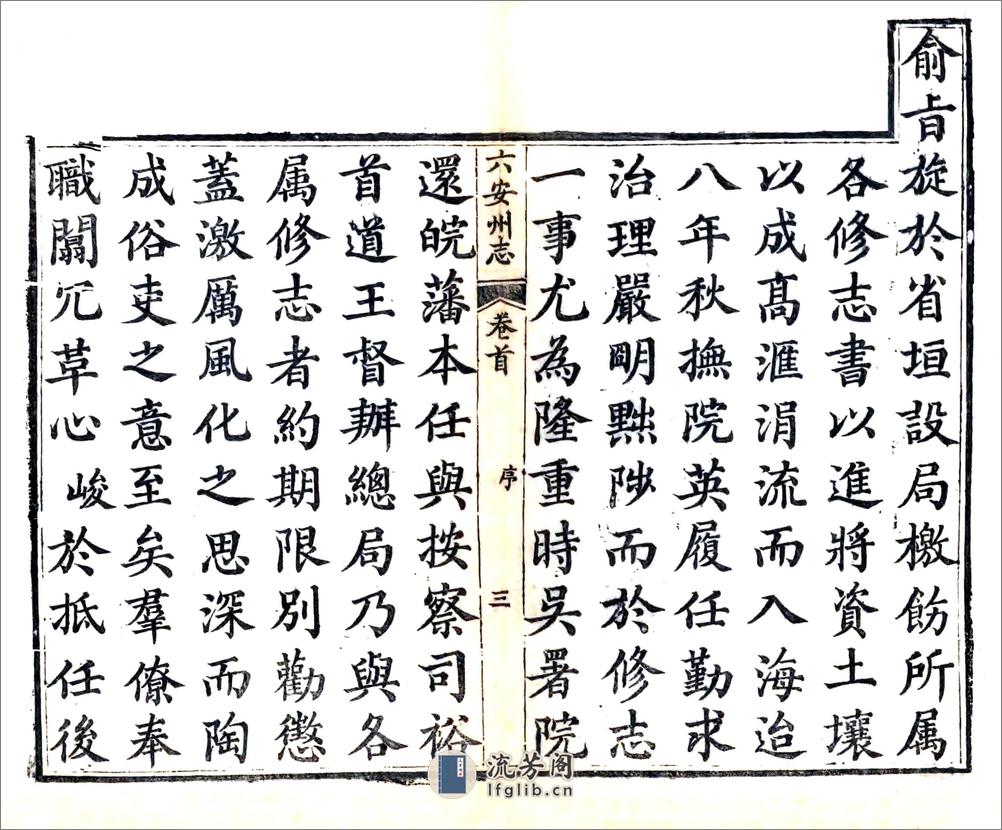 俞旨旋於省垣設局檄飭所属
各修志書以進將資土壤
以成髙滙涓流而入海迨
八年秋撫院英履任勤求
治理嚴明黜陟而於修志
一事尤為隆重時吳署院
六安州志 卷首 序 三
還皖藩本任與按察司裕
首道王督辦總局乃與各
属修志者約期限別勸懲
蓋激厲風化之思深而陶
成俗吏之意至矣羣僚奉
職闒冗草心峻於抵任後
流芳阁
lfglib.cn